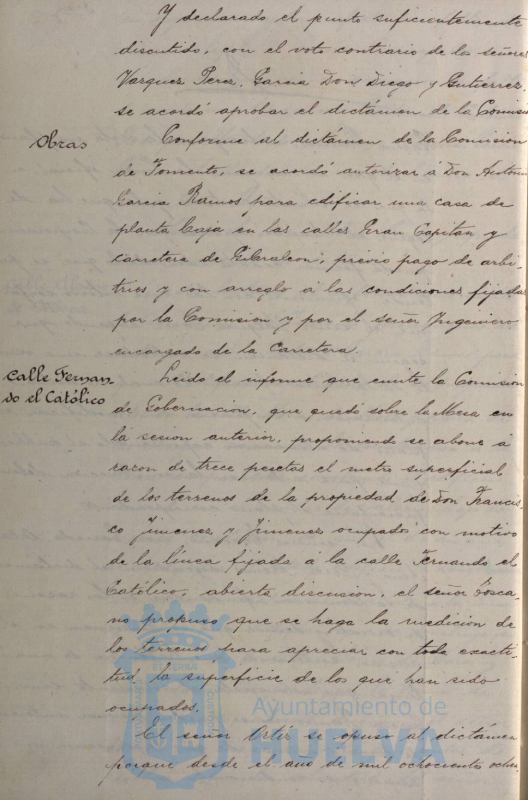 Y declarado el punto suficientemente
discutido, con el voto contrario de los señores
Vazquez Perez, Garcia Don Diego y Gutierrez,
se acordó aprobar el dictámen de la Comision
Obras
Conforme al dictámen de la Comision
de Fomento, se acordó autorizar á Don Antonio
Garcia Ramos para edificar una casa de
planta baja en las calles Gran Capitan y
carretera de Gibraleon, previo pago de arbi-
trios y con arreglo á las condiciones fijadas
por la Comision y por el señor Ingeniero
encargado de la Carretera.
Calle Fernan-
do el Católico
Leido el informe que emite la Comision
de Gobernacion, que quedó sobre la Mesa en
la sesion anterior, proponiendo se abone á
razon de trece pesetas el metro superficial
de los terrenos de la propiedad de Don Francis-
co Jimenez y Jimenez ocupados con motivo
de la línea fijada á la calle Fernando el
Católico, abierta discusion, el señor Tosca-
no propuso que se haga la medicion de
los terrenos para apreciar con toda exacti-
tud la superficie de los que han sido
ocupados.
El señor Ortiz se opuso al dictámen
porque desde el año de mil ochociento ochen
Ayuntamiento de
HUELVA